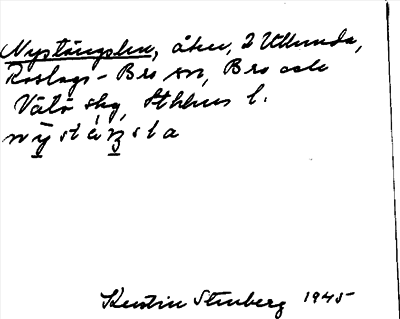 Nystängslen, åker, 2 Ullunda,
Roslags-Bro sn, Bro och
Vätö skg, Sthlms l.
Kerstin Stenberg 1945